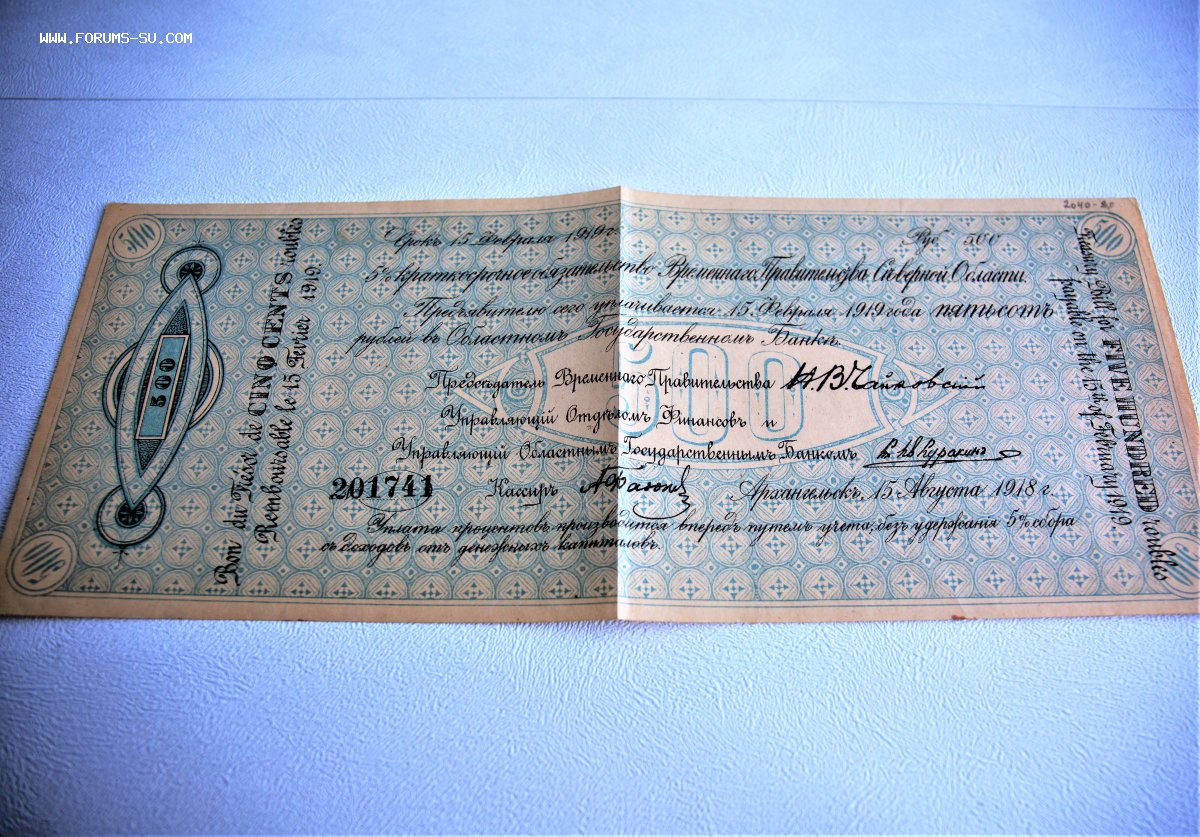 WWW.FORUMS-SU.COM
2040-80
500
500
Срокъ 15 Февраля 1919 г.
Руб. 500
5% краткосрочное обязательство Временнаго Правительства Сѣверной Области.
Предъявителю сего уплачивается 15 Февраля 1919 года пятьсотъ
рублей въ Областномъ Государственномъ Банкѣ.
500
Предсѣдатель Временнаго Правительства Н.В.Чайковскій
Управляющій Отдѣломъ Финансовъ и
Управляющій Областнымъ Государственнымъ Банкомъ Куракинъ
201741
Кассиръ
Архангельскъ, 15 Августа 1918 г.
Уплата процентовъ производится впередъ путемъ учета, безъ удержанія 5% сбора
съ доходовъ отъ денежныхъ капиталовъ.
500
Bon du Trésor de CINQ CENTS roubles
Remboursable le 15 Février 1919
Treasury Bill for FIVE HUNDRED rubles
payable on the 15th of February 1919
500
500